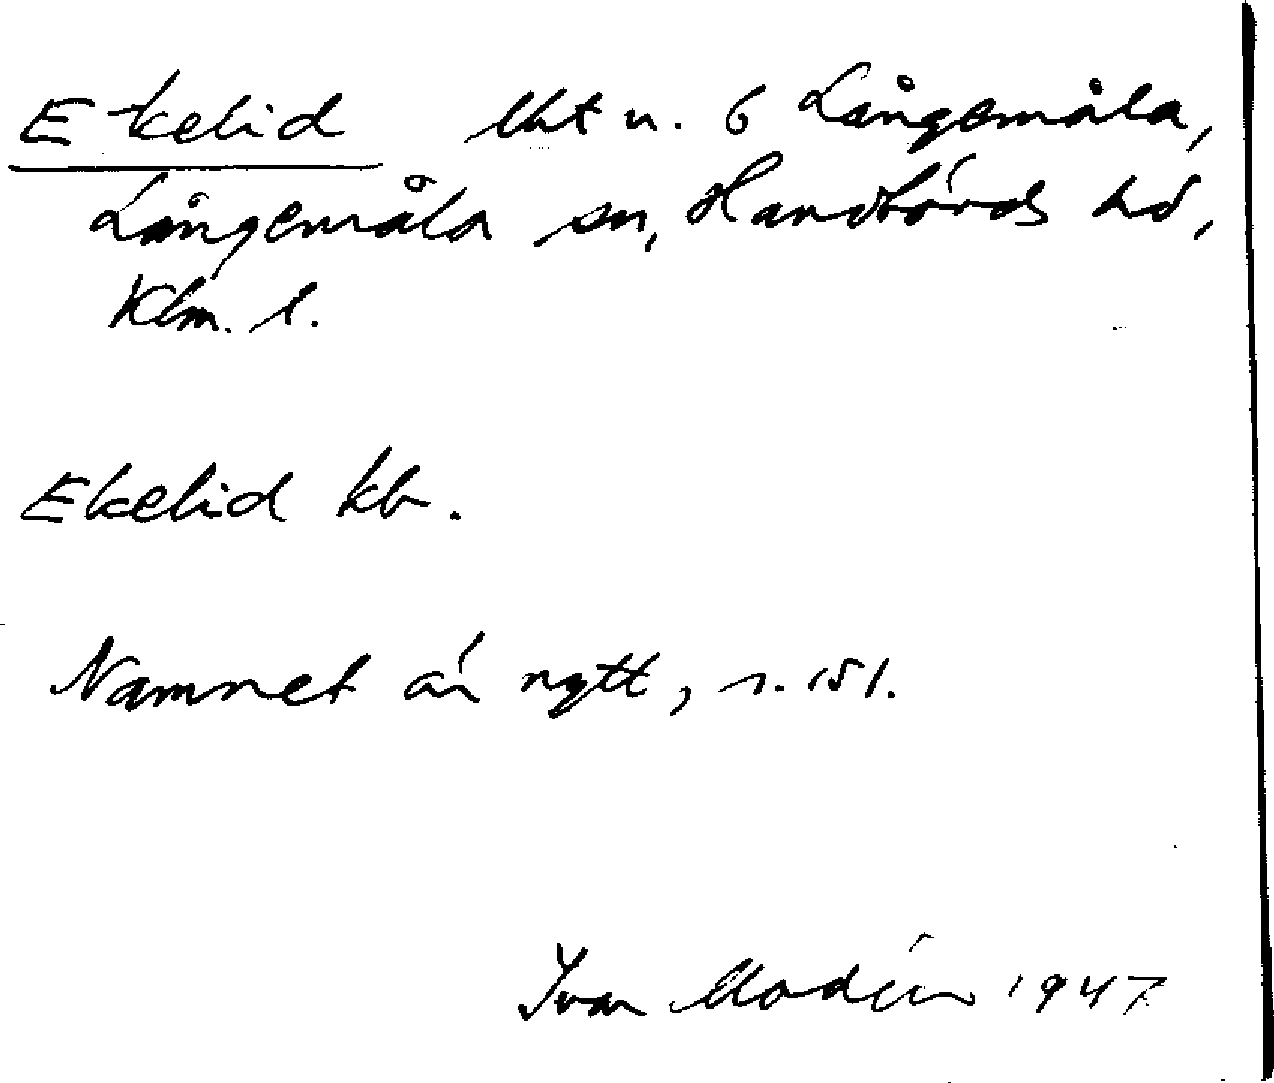 Ekelid lht u. 6 Långemåla,
Långemåla sn, Handbörds hd,
Klm. l.
Ekelid kb.
Namnet är nytt, s. 151.
Ivar Modéer 1947